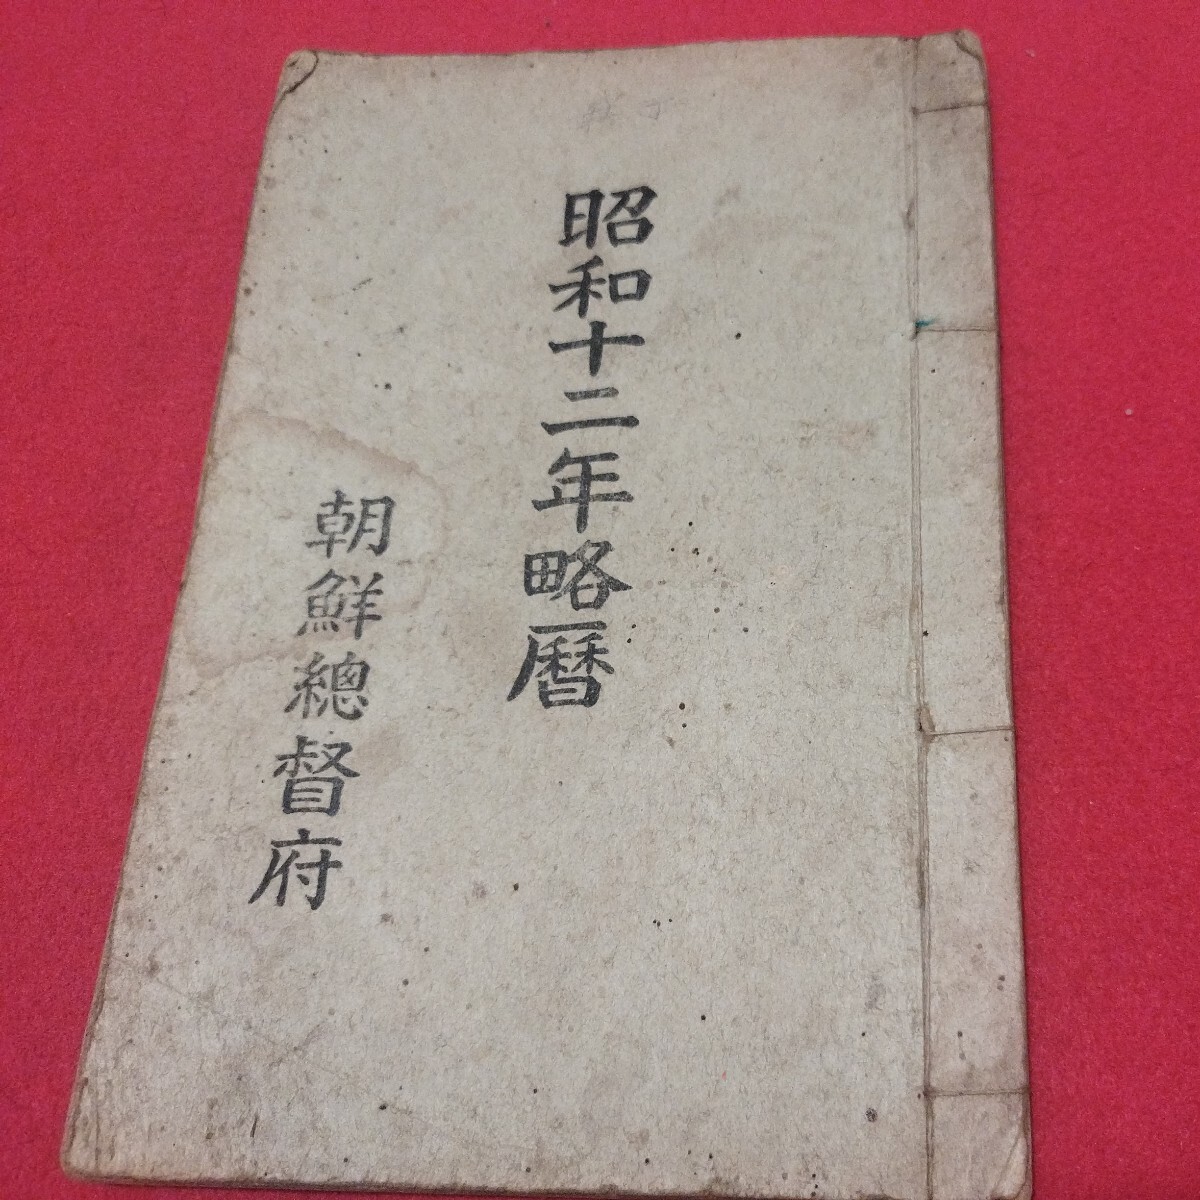 昭和十二年略暦
朝鮮總督府